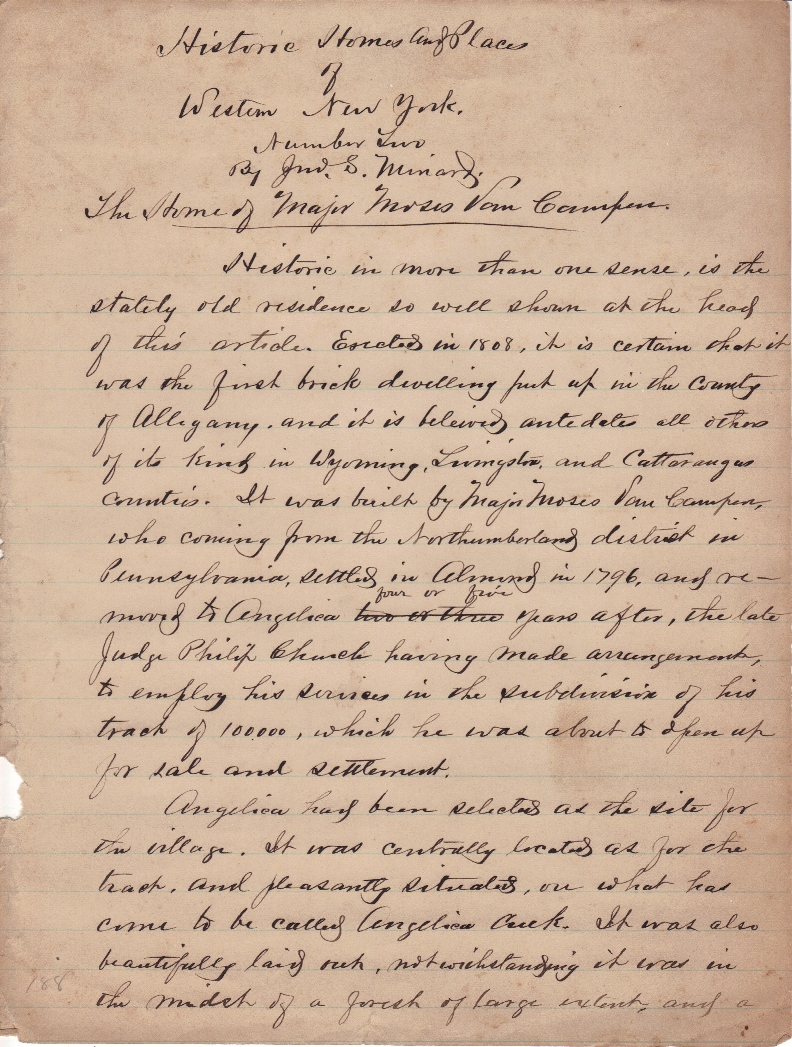 Historic Homes and Places
of
Western New York.
Number Two
By Jno. S. Minard.
The Home of Major Moses Van Campen.
Historic in more than one sense, is the
stately old residence so well shown at the head
of this article. Erected in 1808, it is certain that it
was the first brick dwelling put up in the county
of Allegany. and it is beleived antedates all others
of its kind in Wyoming, Livingston, and Cattaraugus
counties. It was built by Major Moses Van Campen,
who coming from the Northumberland district in
Pennsylvania, settled in Almond in 1796, and re-
four or five
moved to Angelica two or three years after, the late
Judge Philip Church having made arrangements,
to employ his services in the subdivision of his
tract of 100000, which he was about to open up
for sale and settlement.
Angelica had been selected as the site for
the village. It was centrally located as for the
tract, and pleasantly situated, on what has
come to be called Angelica Creek. It was also
beautifully laid out, notwithstanding it was in
188
the midst of a forest of large extent, and a